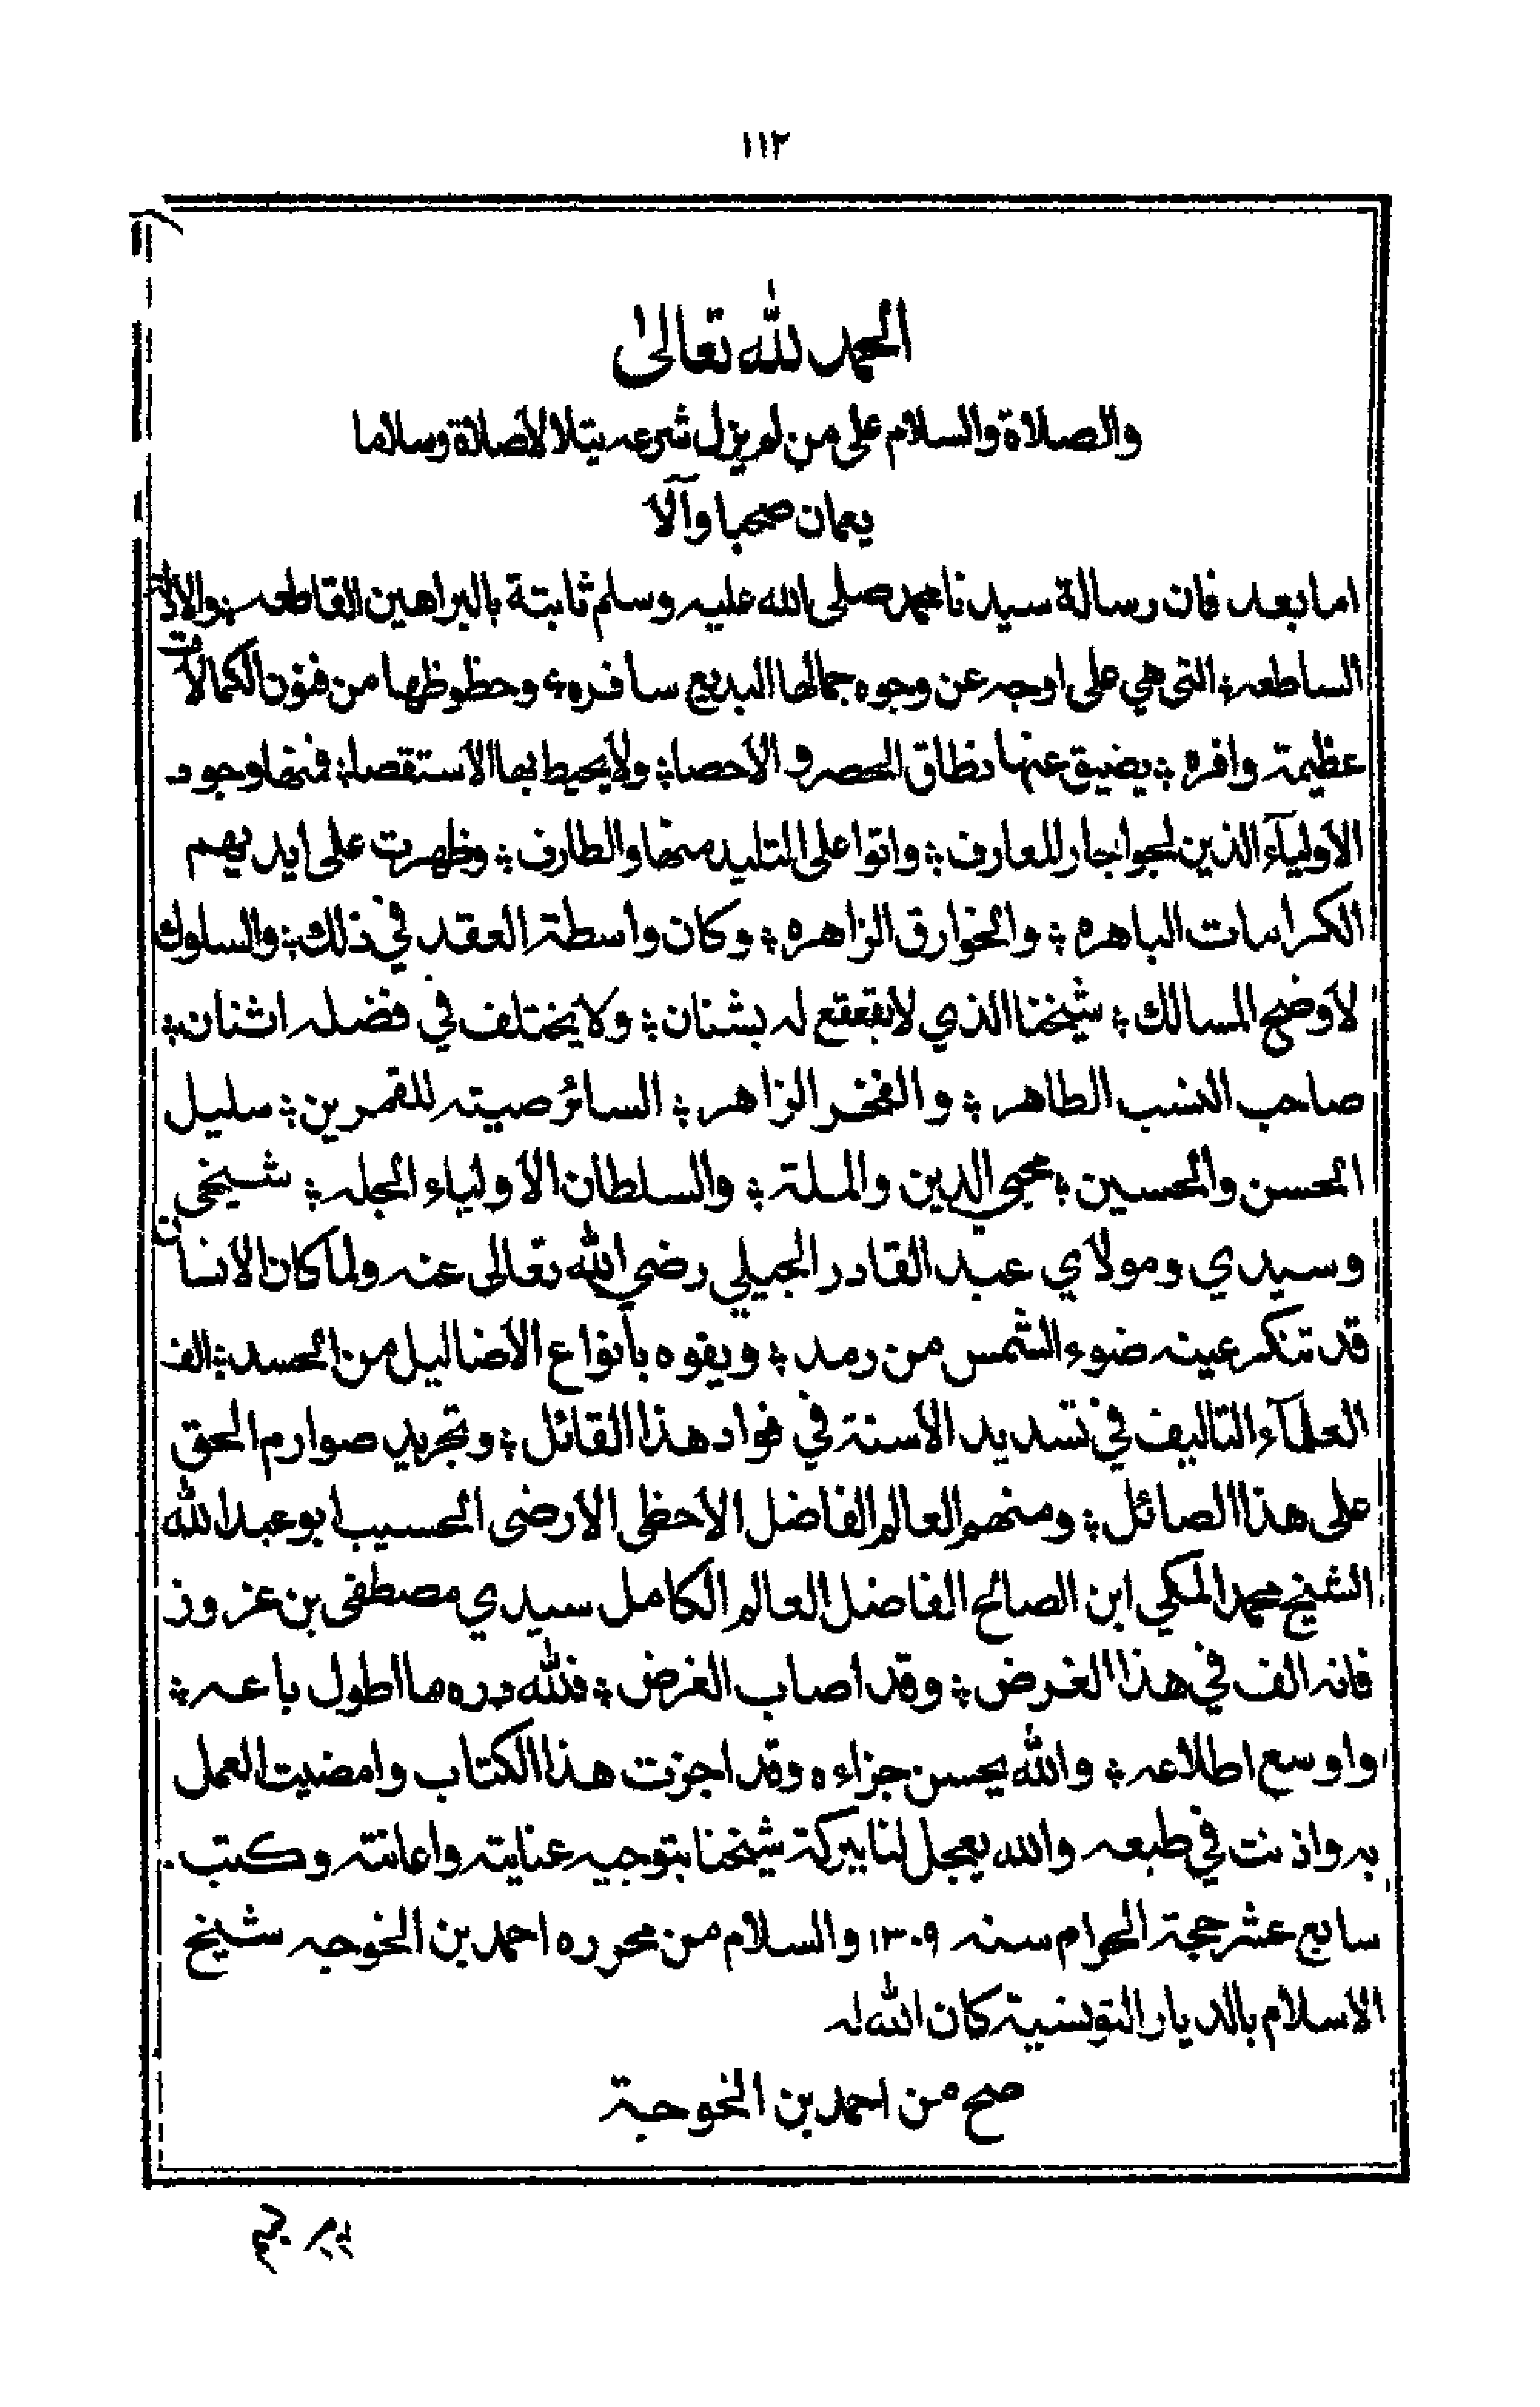 ١١٢
الحمد لله تعالى
والصلاة والسلام على من لم يزل شرعه يتلالأ صلاة وسلاما
يعمان صحبا وآلا
اما بعد فان رسالة سيدنا محمد صلى الله عليه وسلم ثابتة بالبراهين القاطعه ؛ والادلة
الساطعه ؛ التى هي على اوجه عن وجوه جمالها البديع سافره ؛ وحظوظها من فنون الكمالات
عظيمة وافره ؛ يضيق عنها نطاق الحصر و الأحصا ؛ ولا يحيط بها الأستقصا ؛ فمنها وجود
الأوليآء الذين لججوا بحار المعارف ؛ واتوا على التليد منها والطارف ؛ وظهرت على ايديهم
الكرامات الباهره ؛ والخوارق الزاهره ؛ وكان واسطة العقد في ذلك ؛ والسلوك
لأوضح المسالك ؛ شيخنا الذي لا يقعقع له بشنان ؛ ولا يختلف في فضله اثنان ؛
صاحب النسب الطاهر ؛ والفخر الزاهر ؛ السائر صيته للقمرين ؛ سليل
الحسن والحسين ؛ محيي الدين والملة ؛ والسلطان الأولياء الجله ؛ شيخى
وسيدي ومولاي عبد القادر الجيلي رضي الله تعالى عنه ولما كان الانسان
قد تنكر عينه ضوء الشمس من رمد ؛ ويفوه بأنواع الأضاليل من الحسد ؛ الف
العلمآء التاليف في تسديد الاسنة في فواد هذا القائل ؛ وتجريد صوارم الحق
على هذا الصائل ؛ ومنهم العالم الفاضل الأحظى الارضى الحسيب ابو عبد الله
الشيخ محمد المكي ابن الصالح الفاضل العالم الكامل سيدي مصطفى بن عزوز
فانه الف في هذا الغرض ؛ وقد اصاب الغرض ؛ فلله دره ما اطول باعه ؛
واوسع اطلاعه ؛ والله يحسن جزاءه وقد اجزت هذا الكتاب وامضيت العمل
به واذنت في طبعه والله يعجل لنا ببركة شيخنا بتوجيه عنايته واعانته وكتب
سابع عشر حجة الحرام سنه ١٣٠٩ والسلام من محرره احمد بن الخوجه شيخ
الاسلام بالديار التونسية كان الله له
صح من احمد بن الخوجة